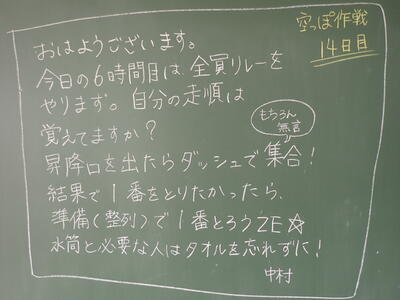 空っぽ作戦
14日目
おはようございます。
今日の6時間目は、全員リレーを
やります。自分の走順は
覚えてますか？
もちろん
無言
昇降口を出たらダッシュで集合！
結果で1番をとりたかったら、
準備(整列)で1番とろうZE☆
水筒と必要な人はタオルを忘れずに！
中村